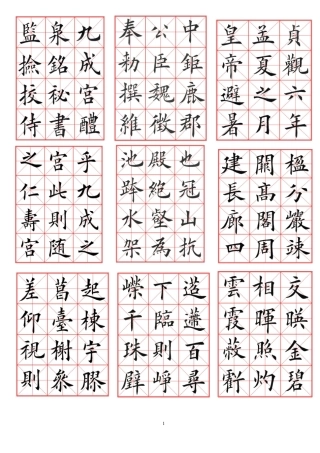 九成宮醴
泉銘祕書
監撿挍侍
中鉅鹿郡
公臣魏徵
奉勑撰維
貞觀六年
孟夏之月
皇帝避暑
乎九成之
宮此則随
之仁壽宮
也冠山抗
殿絕壑為
池跨水架
楹分巖竦
闕高閣周
建長廊四
起棟宇膠
葛臺榭參
差仰視則
迢遰百尋
下臨則崢
嶸千珠璧
交暎金碧
相暉照灼
雲霞蔽虧
1